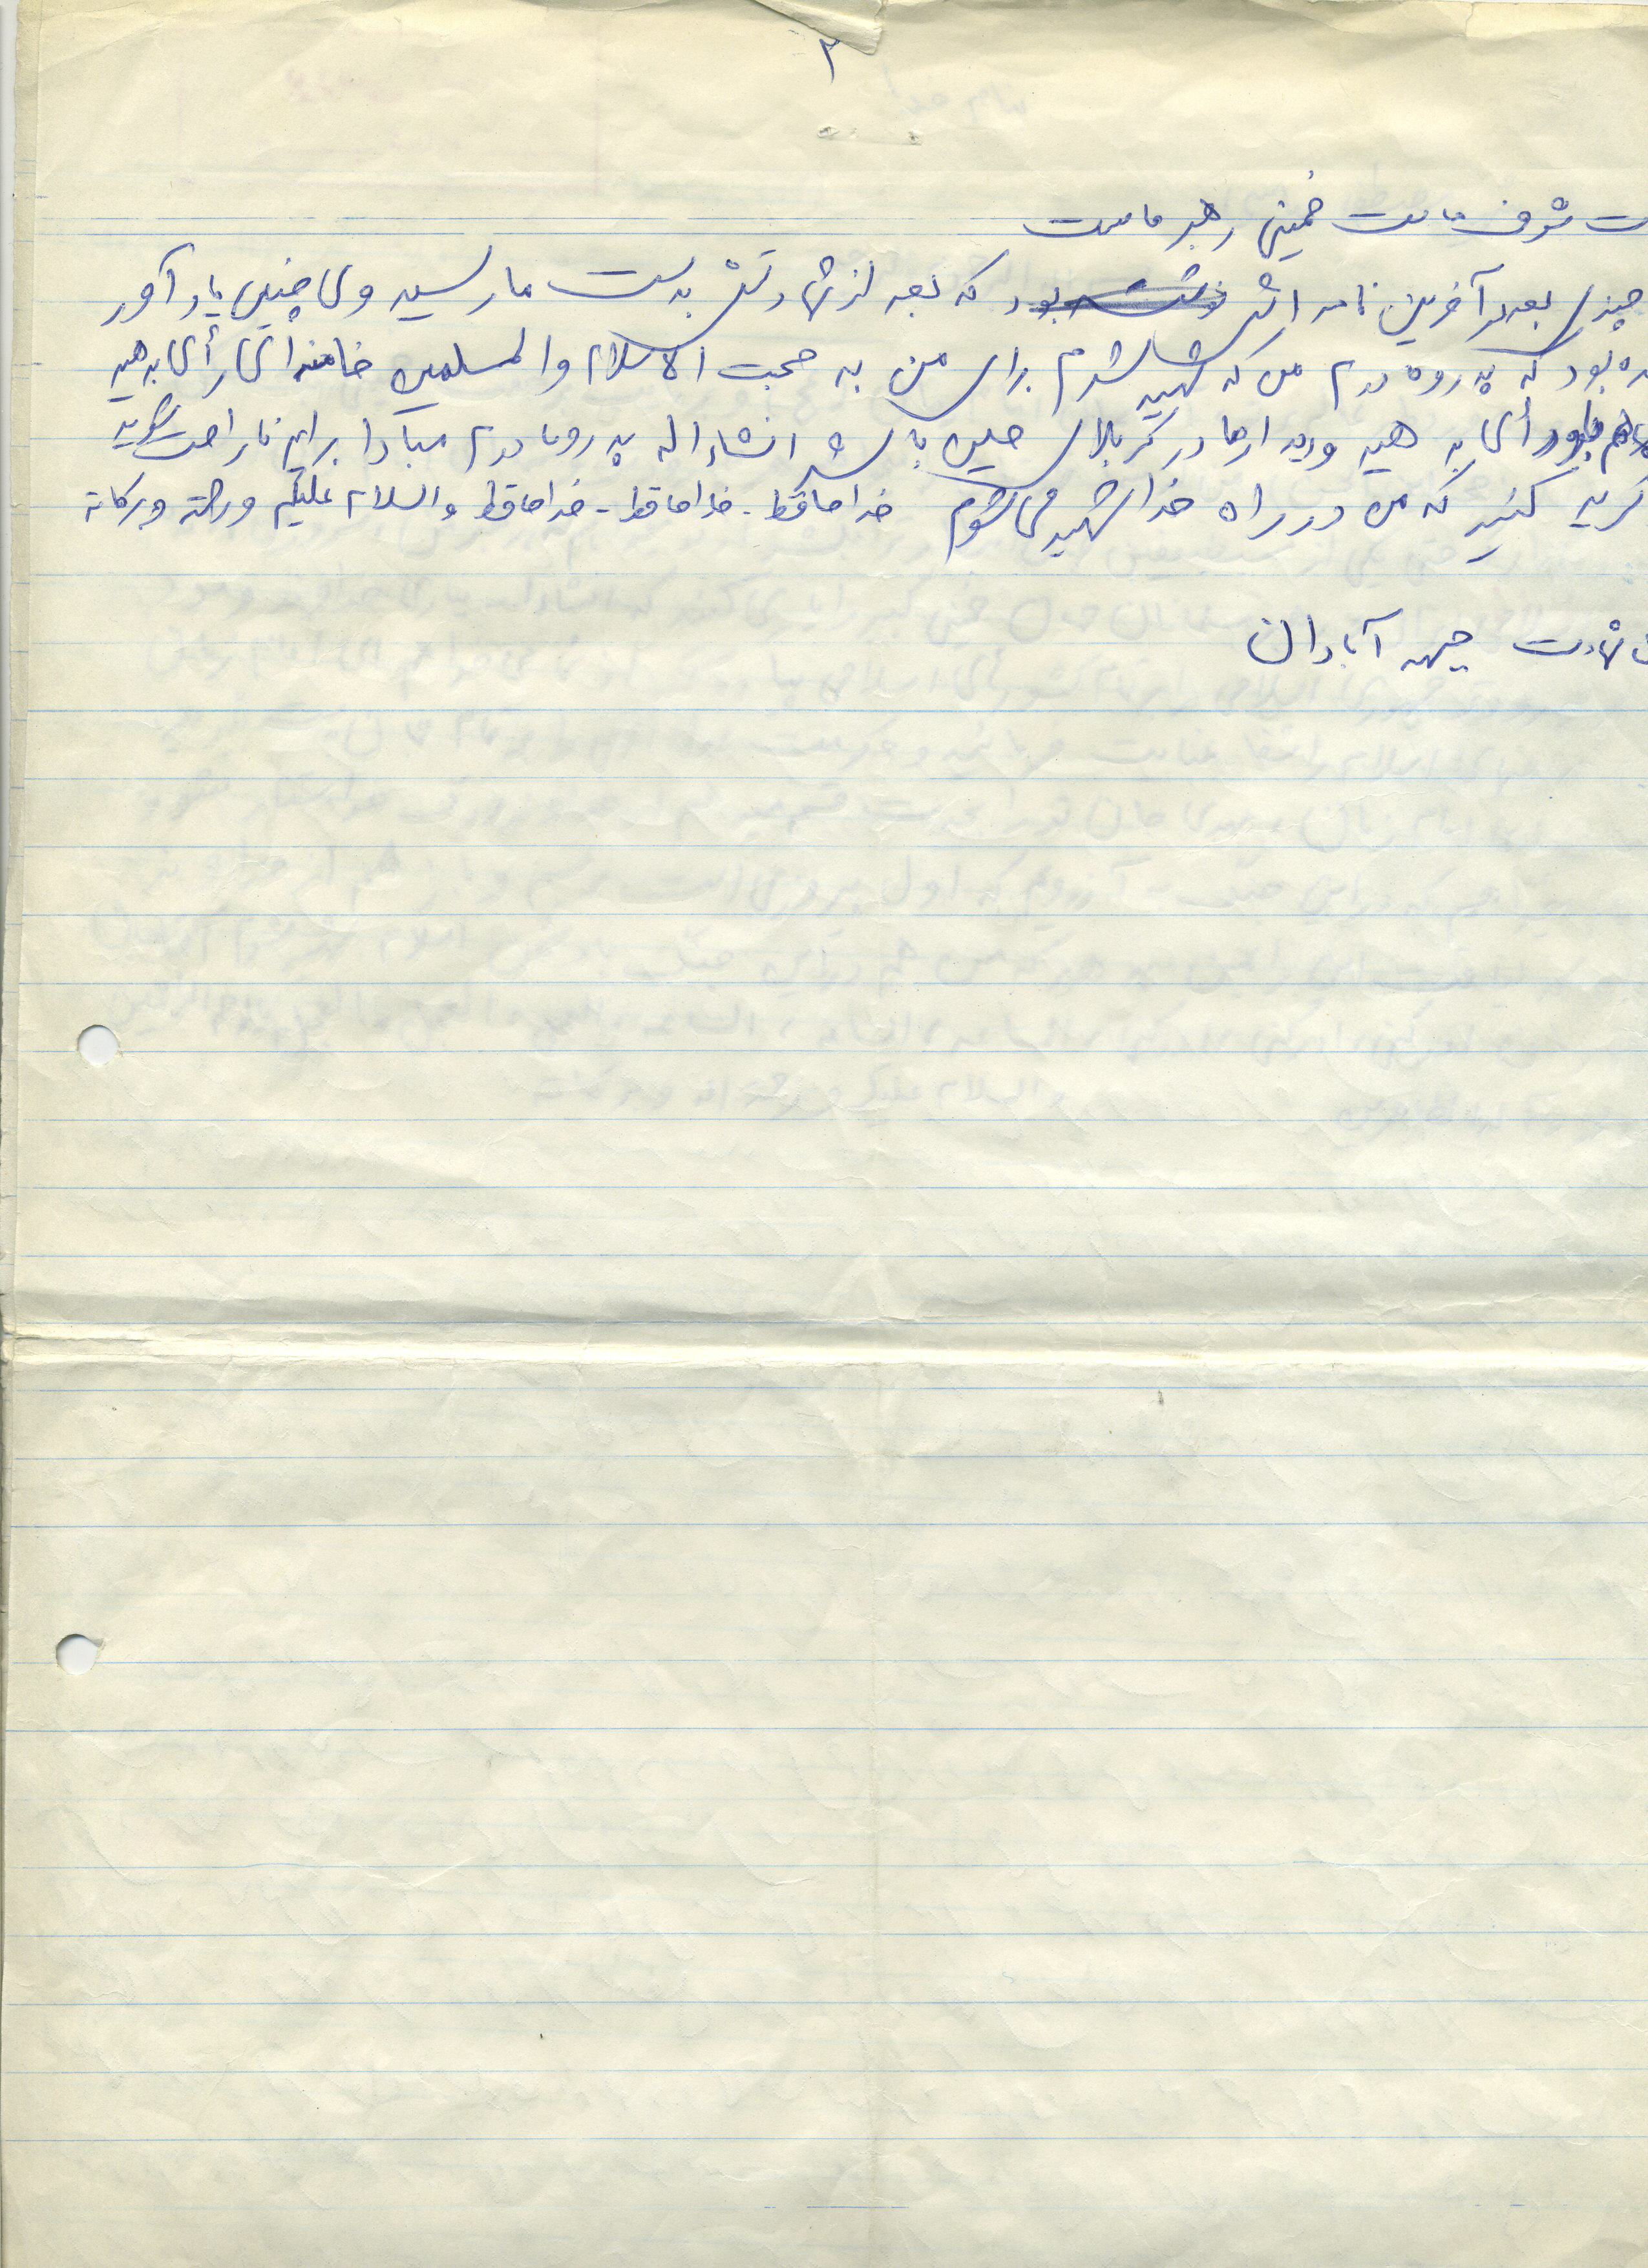 ۳
شرف ماست خمینی رهبر ماست
چیز بعد در آخرین نامه اش نوشته بود که بعد از شهادتش بدست ما رسید وی چنین یادآور
بود که پدر و مادرم من که شهید شدم برای من به حجت الاسلام والمسلمین خامنه ای رأی بدهید
رأی به هید و دیدار ما در کربلای حسین باشد انشاءاله پدر و مادرم مبادا برایم ناراحت شوید
گریه کنید که من در راه خدا شهید می شوم خداحافظ - خداحافظ - خداحافظ والسلام علیکم ورحمته وبرکاته
شهادت جبهه آبادان